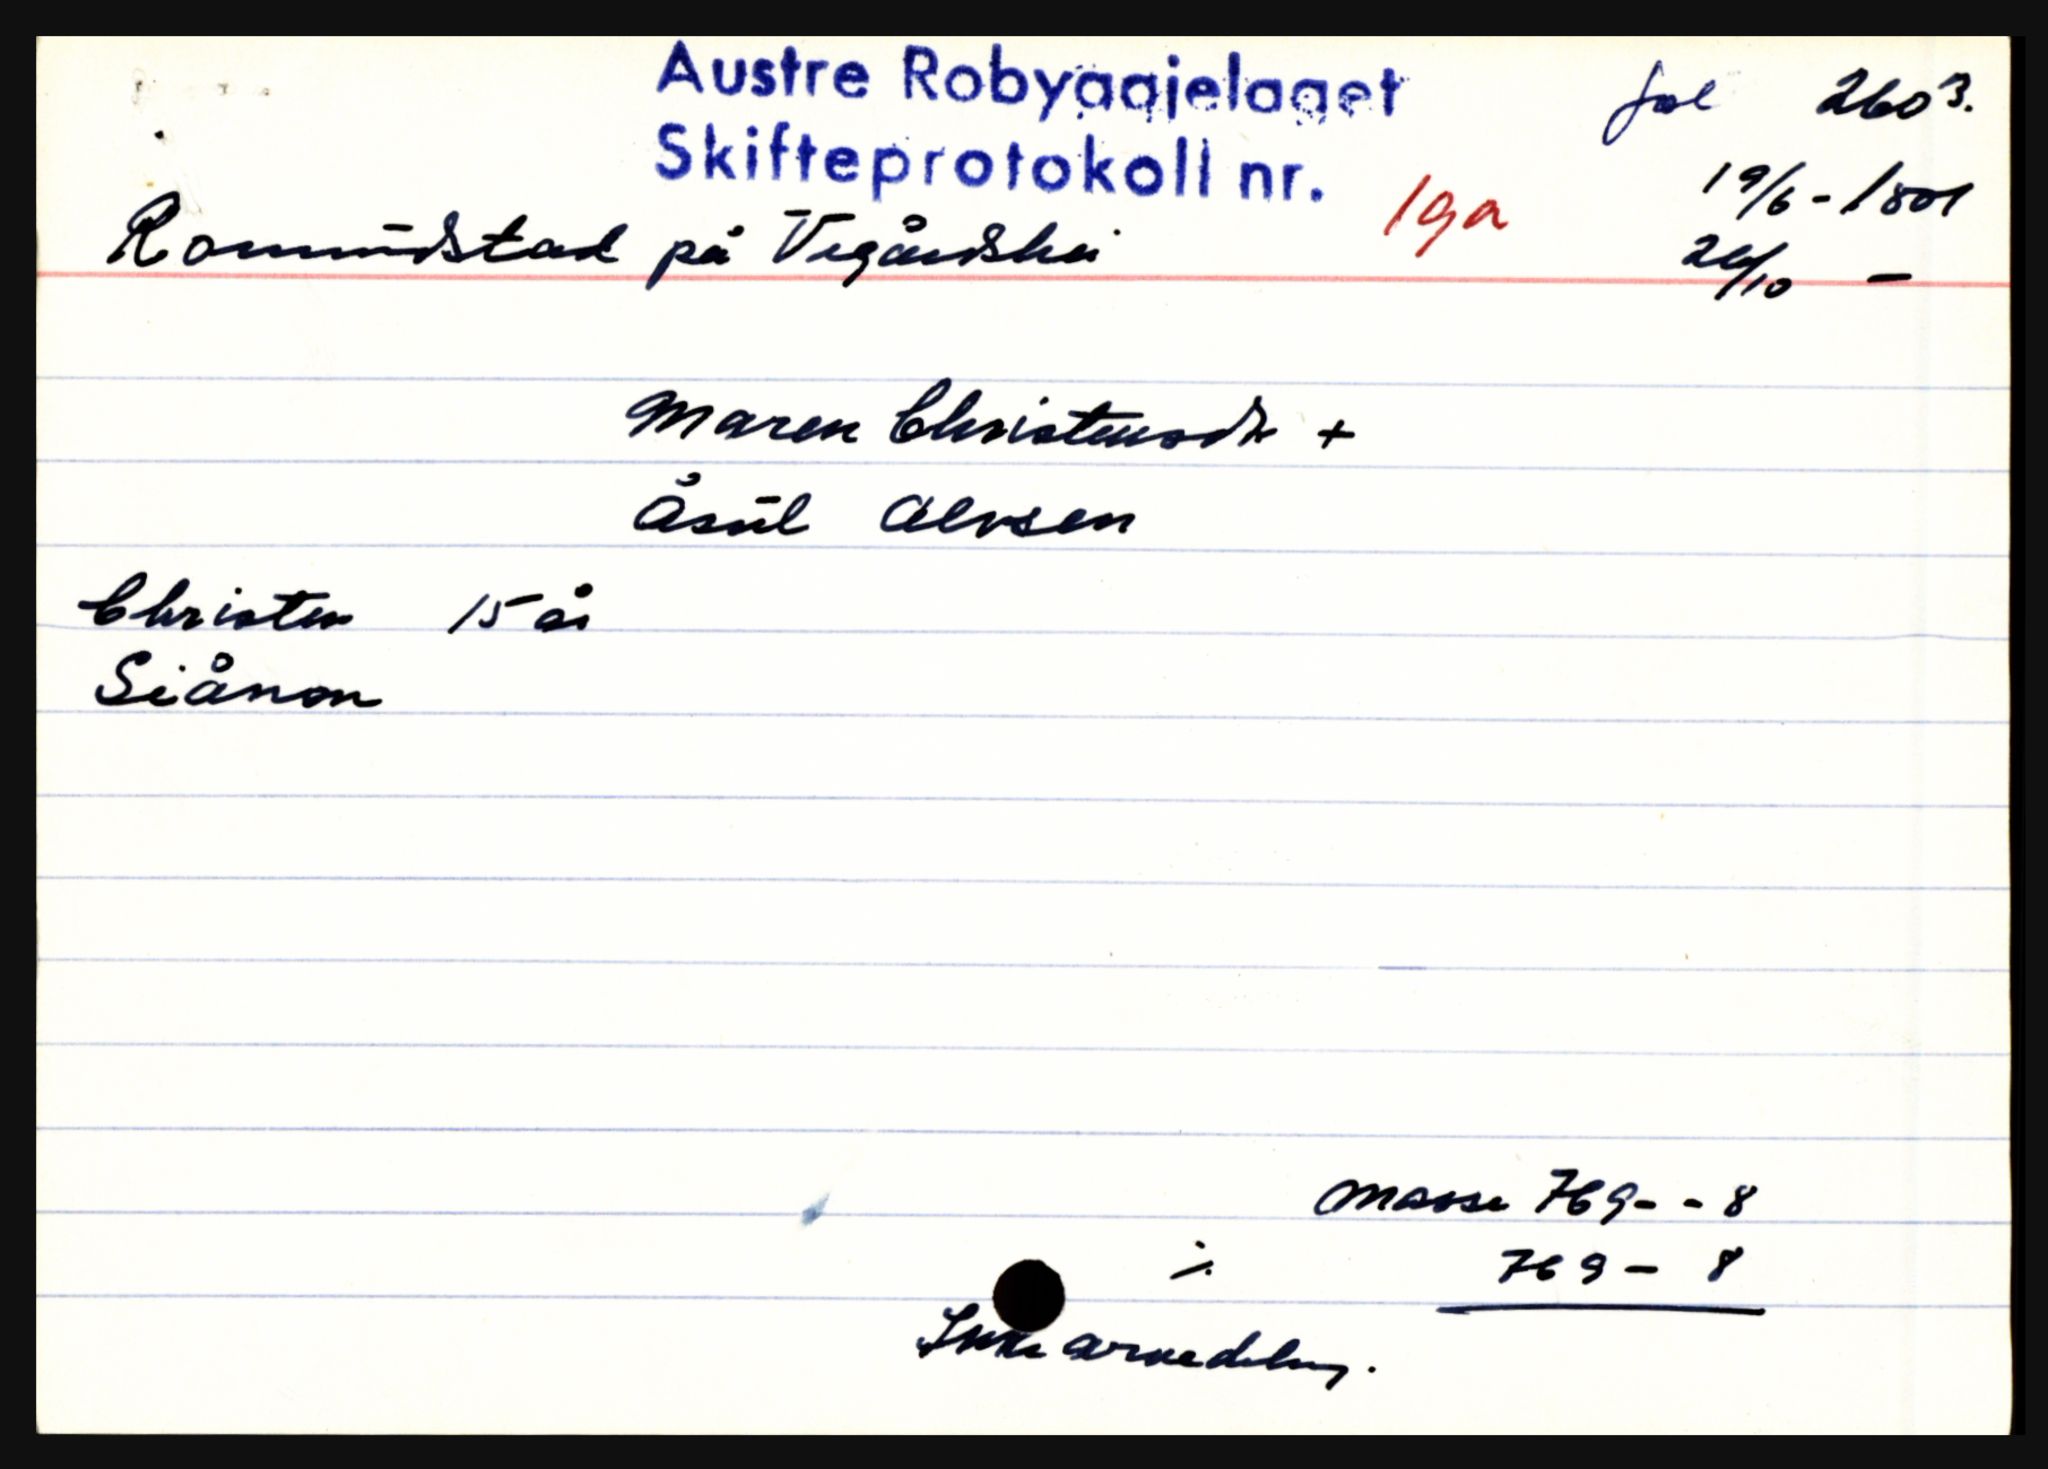 Austre Robyggjelaget fol 260 B.
Skifteprotokoll nr. 19a 19/6 - 1801
Romundstad på Vegårdshei 24/10 -
Maren Christensdtr +
Åsul Alvsen
Christen 15 år
Siånon
Masse 769 - - 8
÷ 769 - 8
Ikke arvedeling.